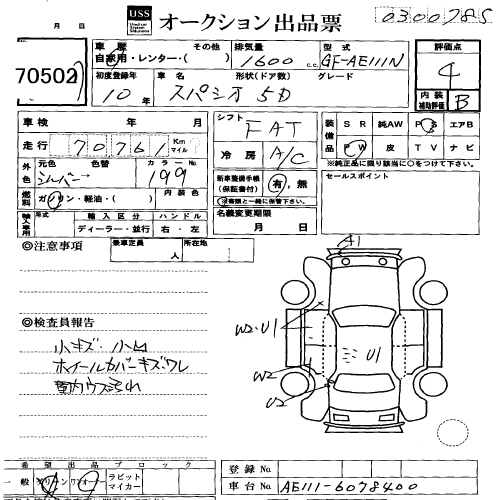 USS オークション出品票 0300785
70502
車歴 その他 排気量 型式 グレード 評価点
自家用・レンター・( ) 1600 cc GF-AE111N 4
初度登録年 車名 形状(ドア数) グレード 内装 補助評価
10年 スパシオ 5D B
車検 年 月 シフト FAT 装備品 SR 純AW PS エアB
走行 70761 Km マイル 冷房 A/C PW 皮 TV ナビ
※純正品に限り該当に○をつけて下さい。
外色 元色 色替 カラーNo. 新車整備手帳 有・無 セールスポイント
シルバー 199 (保証書付)
燃料 ガソリン・軽油・( ) 内装色 (没書類と一緒に保管下さい)
輸入車用 年式 輸入区分 ハンドル 名義変更期限
ディーラー・並行 右・左 月 日
◎注意事項 乗車定員 人 所在地
A1
W2・U1
U1
W2
U2
◎検査員報告
小キズ・小凹
ホイールカバーキズ・ワレ
室内ウス汚れ
希望出品ブロック
一般 ラビット マイカー
登録No
車台No AE111-6078400